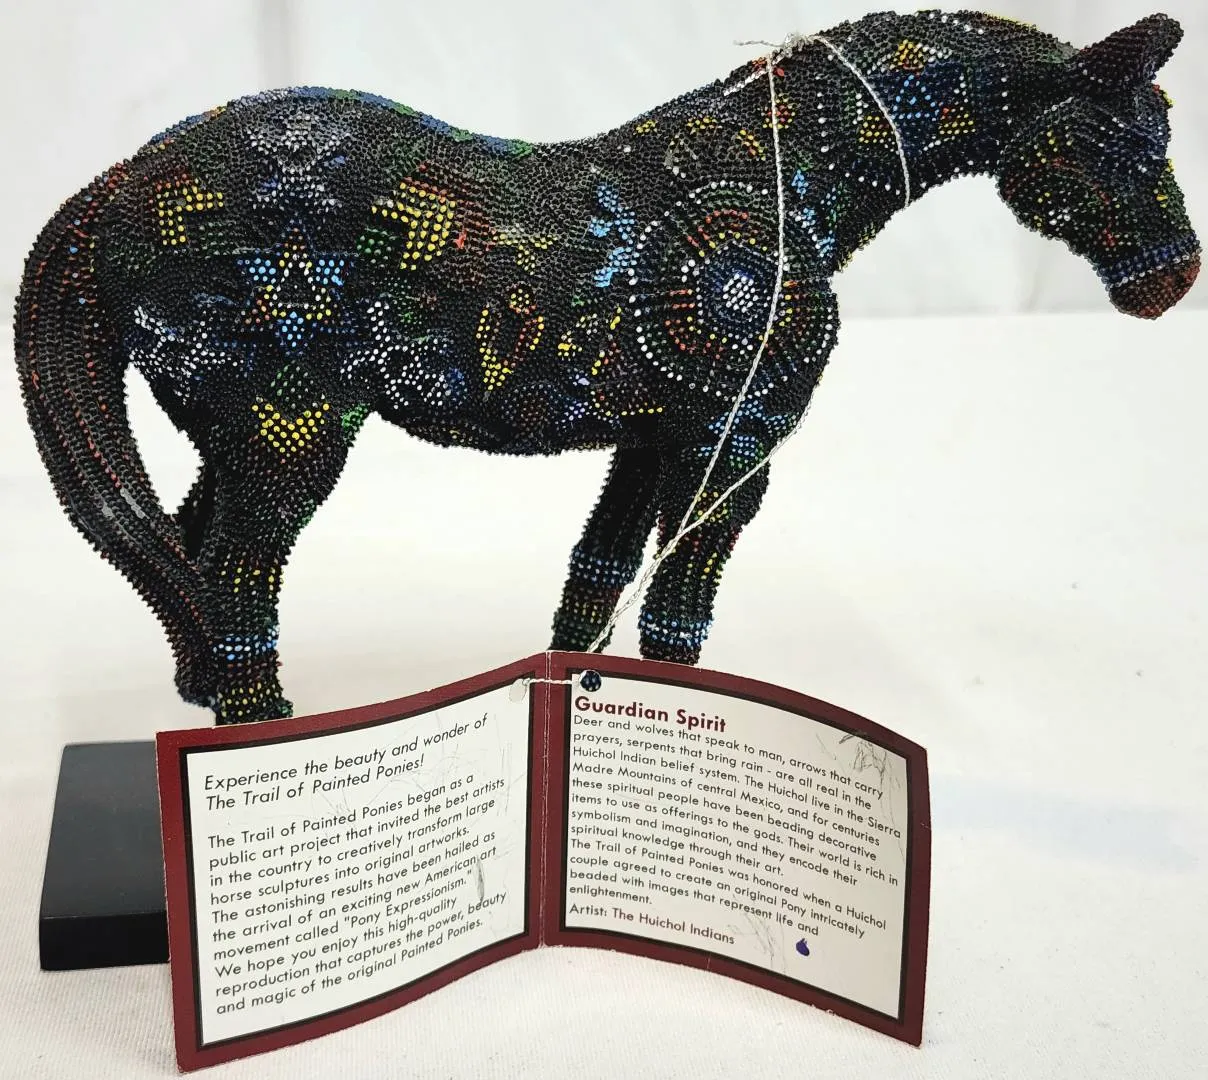 Experience the beauty and wonder of
The Trail of Painted Ponies!
The Trail of Painted Ponies began as a
public art project that invited the best artists
in the country to creatively transform large
horse sculptures into original artworks.
The astonishing results have been hailed as
the arrival of an exciting new American art
movement called "Pony Expressionism."
We hope you enjoy this high-quality
reproduction that captures the power, beauty
and magic of the original Painted Ponies.
Guardian Spirit
Deer and wolves that speak to man, arrows that carry
prayers, serpents that bring rain - are all real in the
Huichol Indian belief system. The Huichol live in the Sierra
Madre Mountains of central Mexico, and for centuries
these spiritual people have been beading decorative
items to use as offerings to the gods. Their world is rich in
symbolism and imagination, and they encode their
spiritual knowledge through their art.
The Trail of Painted Ponies was honored when a Huichol
couple agreed to create an original Pony intricately
beaded with images that represent life and
enlightenment.
Artist: The Huichol Indians